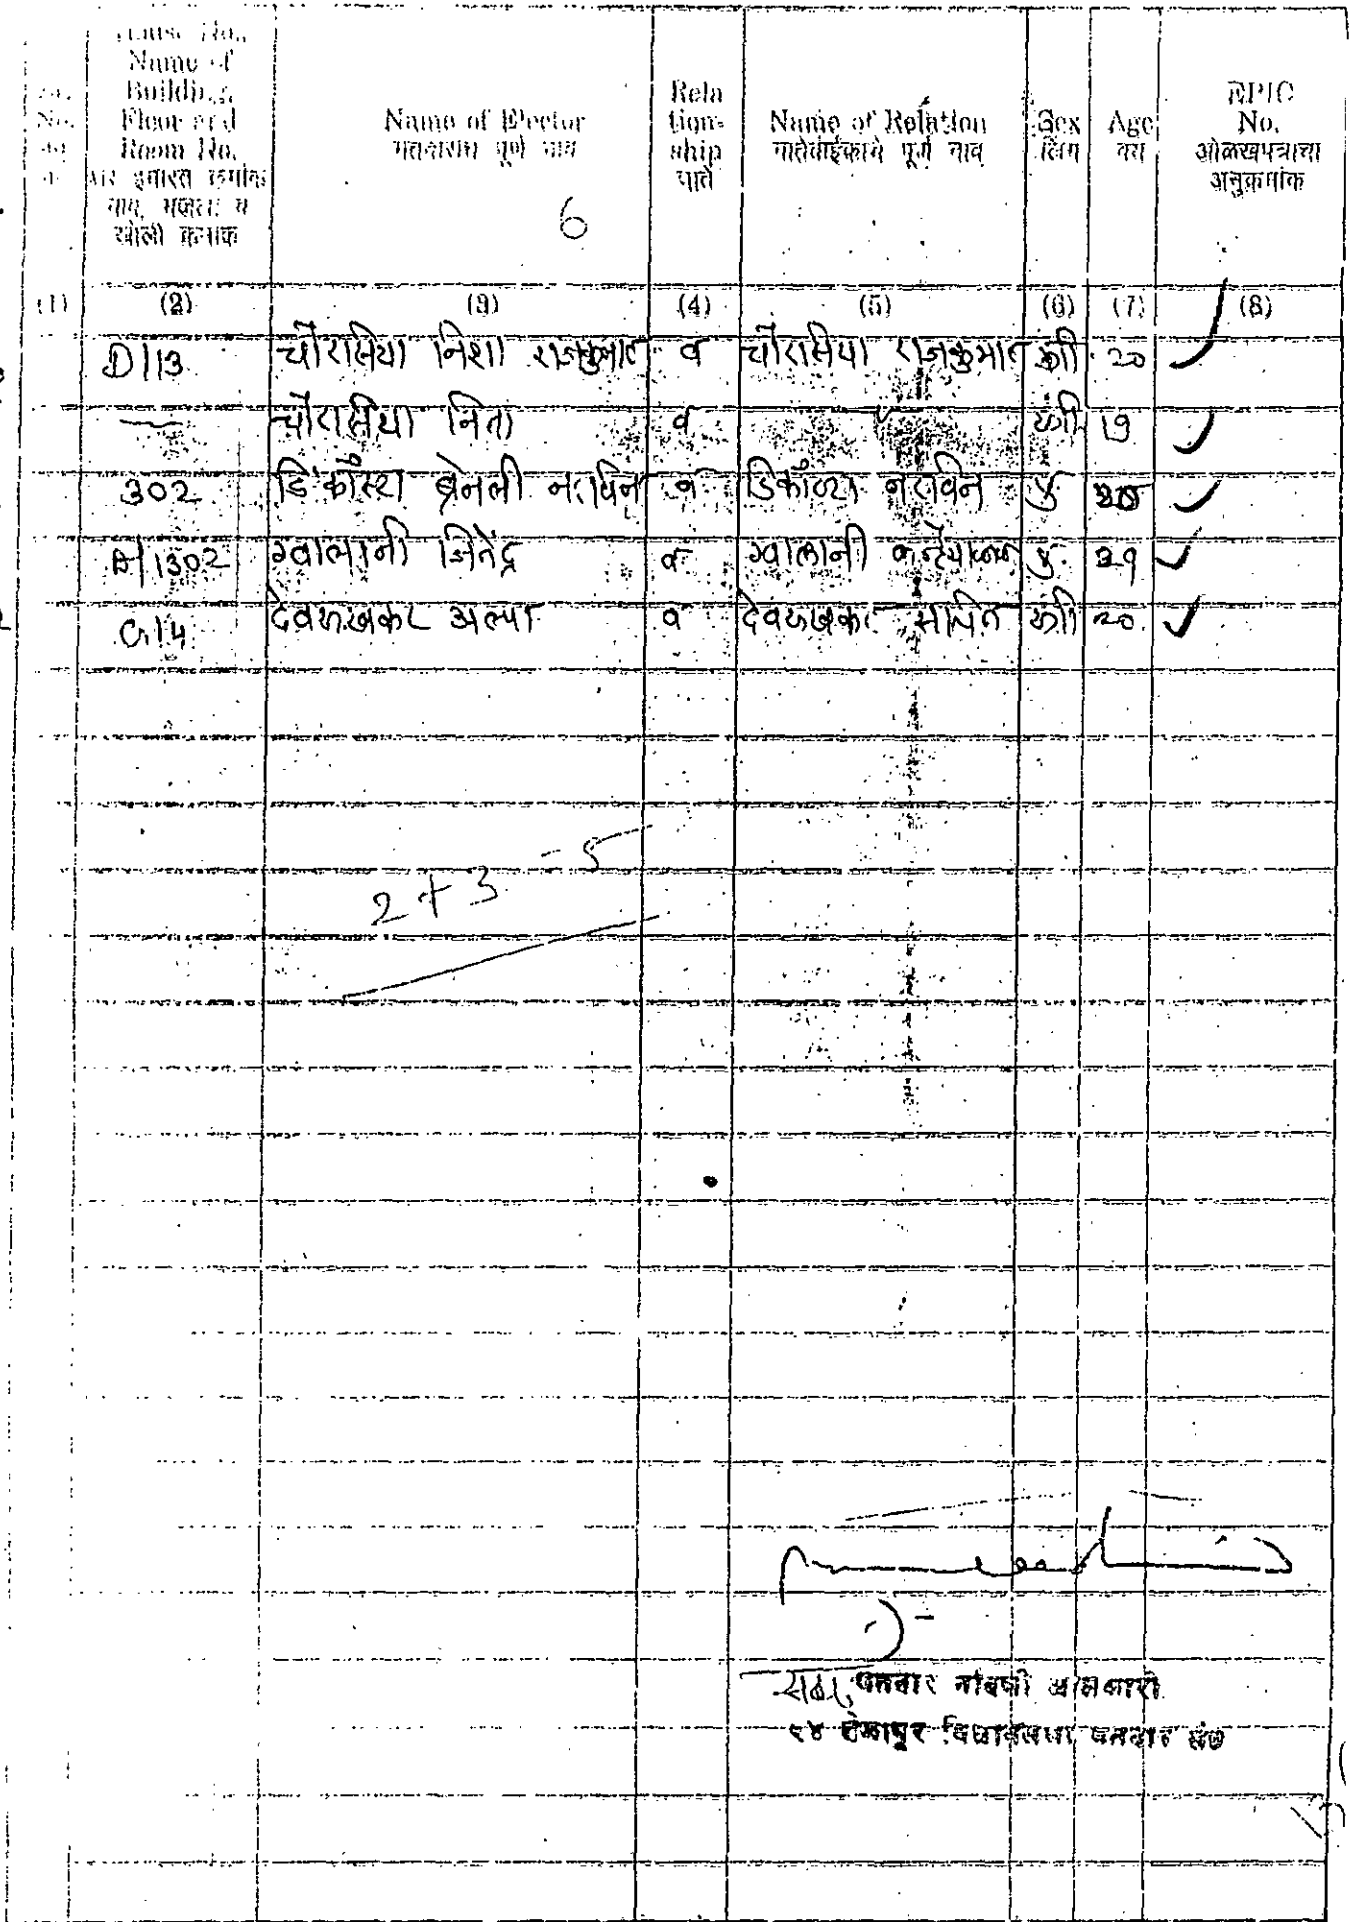 House No.,
Name of
Building,
Floor and
Room No.
घर इमारत क्रमांक
नाव, मजला व
खोली क्रमांक
Name of Elector
मतदाराचे पूर्ण नाव
6
Rela
tion-
ship
नाते
Name of Relation
नातेवाईकाचे पूर्ण नाव
Sex
लिंग
Age
वय
EPIC
No.
ओळखपत्राचा
अनुक्रमांक
(1) (2) (3) (4) (5) (6) (7) (8)
D/13 चौरासिया निशा राजकुमार व चौरासिया राजकुमार स्त्री 20 ✓
— चौरासिया निता व स्त्री 19 ✓
302 डिकॉस्टा ब्रेनली नरविन व डिकॉस्टा नरविन पु ✓
A/1302 ग्वालानी जितेंद्र व ग्वालानी पु. 29 ✓
C/14 देवरुखकर अल्पा व देवरुखकर स्त्री 20 ✓
2 + 3 = 5
मतदार नोंदणी अधिकारी
विधानसभा मतदार संघ